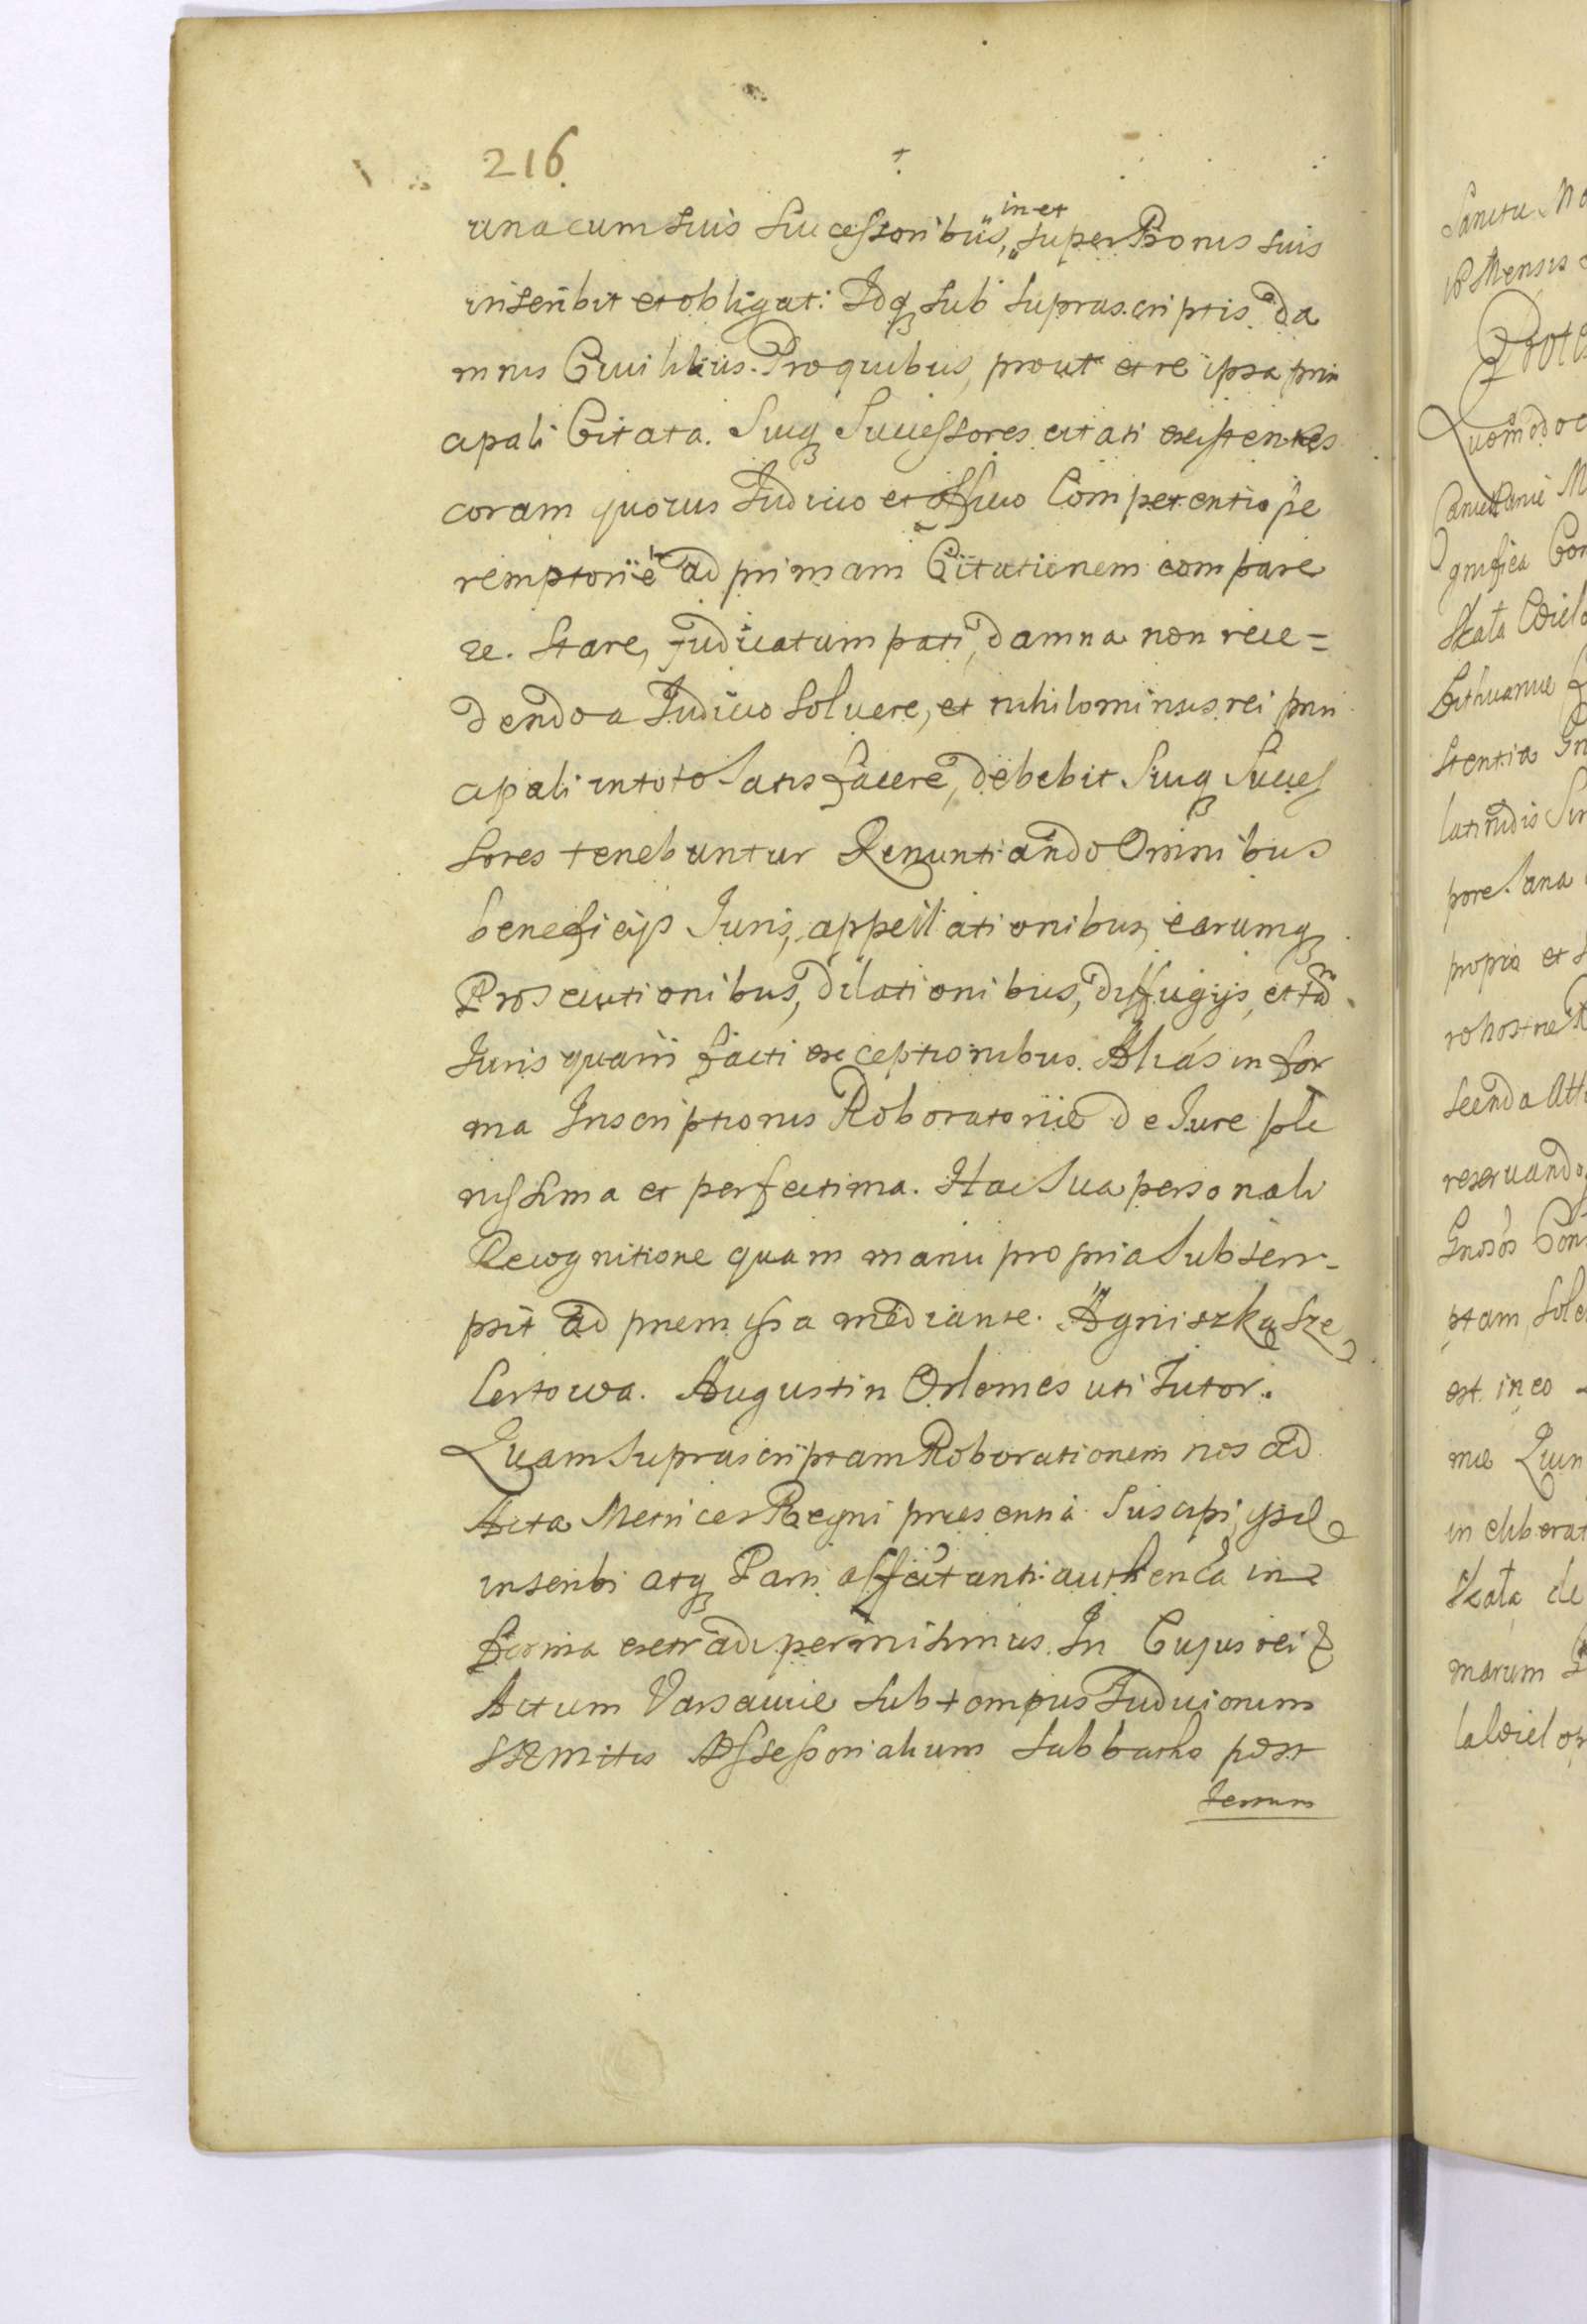 216
una cum suis Successoribus, in et super Bonis suis
inscribit et obligat. Idq sub suprascriptis da
mnis Civilibus. Pro quibus, prout et re ipsa prin
cipali Citata. Suiq Successores citati existentes
coram quovis Judicio et officio Competenti pe
remptorie ad primam Citationem compare
re. Stare, judicatum pati, damna non rece=
dendo a Judicio solvere, et nihilominus rei prin
cipali in toto satisfacere, debebit Suiq Succes
sores tenebuntur Renuntiando Omnibus
beneficijs Juris, appellationibus, earumq
Prosecutionibus, dilationibus, diffugijs, et tā
Juris quam facti exceptionibus. Aliás in for
ma Inscriptionis Roboratoriæ de Jure ple
nissima et perfectima. Hac Sua personali
Recognitione quam manu propria Subscri-
psit ad premissa mediante. Agniszka Sze
lertowa. Augustin Orlemes uti Tutor.
Quam suprascriptam Roborationem nos ad
Acta Metrices Regni præsentia Suscipi, ijsde
inscribi atq Parti affectanti authenca in
forma extradi permisimus. In Cujus rei &
Actum Varsaviæ Sub tempus Judiciorum
SRMttis Assessorialium Sabbatho post
Festum
Sanctu
Mensis
Quomodo
gnifica
Lithuaniæ
pore Sana
propria et
reservando
ptam Sole
est in eo
in eliberat
marum